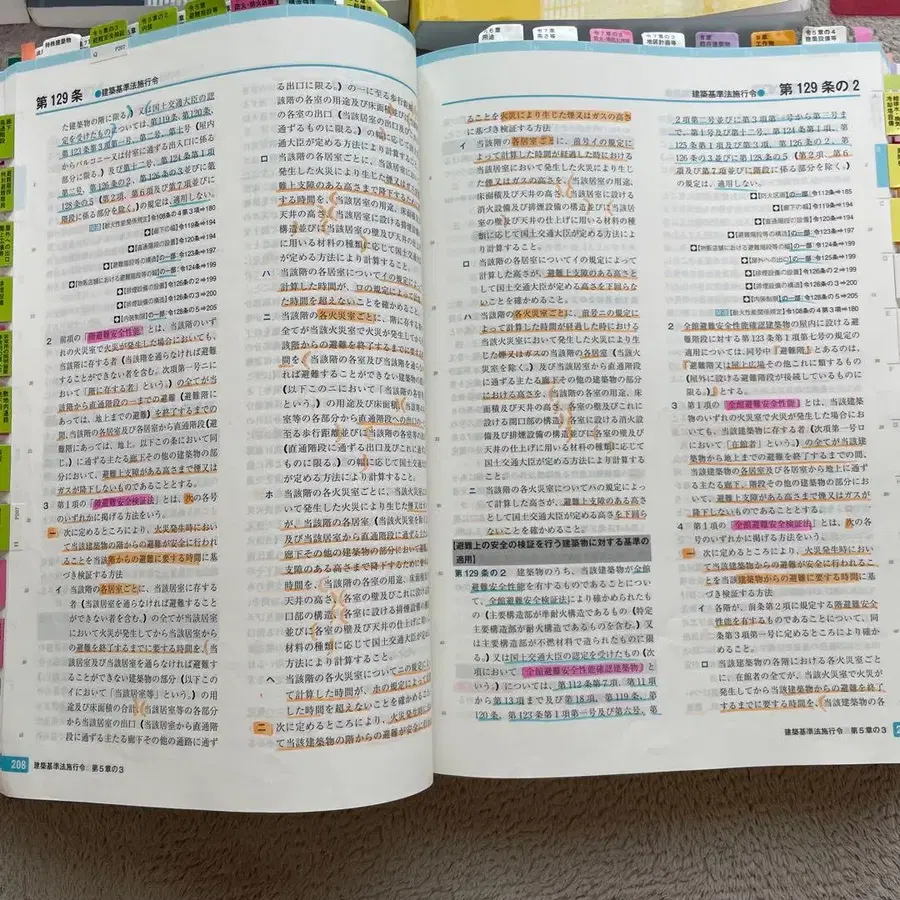 第129条 ●建築基準法施行令
た建築物の階に限る。)又は国土交通大臣の認
定を受けたものについては、第119条、第120条、
第123条第3項第一号、第二号、第十号(屋内
からバルコニー又は付室に通ずる出入口に係る
部分に限る。)及び第十二号、第124条第1項
第二号、第126条の2、第126条の3並びに第
128条の5(第2項、第6項及び第7項並びに
階段に係る部分を除く。)の規定は、適用しない。
令108条の4第3項⇒180
【廊下の幅】令119条⇒194
【直通階段の設置】令120条⇒194
【避難階段等の構造】の一部:令123条⇒197
【物販店舗における避難階段等の幅】の一部:令124条⇒199
【排煙設備の設置】令126条の2⇒199
【排煙設備の構造】令126条の3⇒200
【内装制限】の一部:令128条の5⇒205
2 前項の「階避難安全性能」とは、当該階のいず
れの火災室で火災が発生した場合においても、
当該階に存する者(当該階を通らなければ避難
することができない者を含む。次項第一号ニに
おいて「階に存する者」という。)の全てが当
該階から直通階段の一までの避難(避難階に
あっては、地上までの避難)を終了するまでの
間、当該階の各居室及び各居室から直通階段(避
難階にあっては、地上。以下この条において同
じ。)に通ずる主たる廊下その他の建築物の部
分において、避難上支障がある高さまで煙又は
ガスが降下しないものであることとする。
3 第1項の「階避難安全検証法」とは、次の各号
のいずれかに掲げる方法をいう。
一 次に定めるところにより、火災発生時におい
て当該建築物の階からの避難が安全に行われる
ことを当該階からの避難に要する時間に基
づき検証する方法
イ 当該階の各居室ごとに、当該居室に存する
者(当該居室を通らなければ避難すること
ができない者を含む。)の全てが当該居室
において火災が発生してから当該居室から
の避難を終了するまでに要する時間を、当
該居室及び当該居室を通らなければ避難す
ることができない建築物の部分(以下この
イにおいて「当該居室等」という。)の用
途及び床面積の合計、当該居室等の各部分
から当該居室の出口(当該居室から直通階
段に通ずる主たる廊下その他の通路に通ず
208 建築基準法施行令 第5章の3
る出口に限る。)の一に至る歩行距離
当該階の各室の用途及び床面積
の各室の出口(当該居室の出口及び
通ずるものに限る。)の幅
通大臣が定める方法により計算すること。
ロ 当該階の各居室ごとに、当該居室において
発生した火災により生じた煙又はガスが避
難上支障のある高さまで降下するために要
する時間を、当該居室の用途、床面積及び
天井の高さ、当該居室に設ける排煙設備の
構造並びに当該居室の壁及び天井の仕上げ
に用いる材料の種類に応じて国土交通大臣
が定める方法により計算すること。
ハ 当該階の各居室についてイの規定によって
計算した時間が、ロの規定によって計算し
た時間を超えないことを確かめること。
ニ 当該階の各火災室ごとに、階に存する者の
全てが当該火災室で火災が発生してから当
該階からの避難を終了するまでに要する時
間を、当該階の各室及び当該階を通らなけ
れば避難することができない建築物の部分
(以下このニにおいて「当該階の各室等」
という。)の用途及び床面積、当該階の各
室等の各部分から直通階段への出口の一に
至る歩行距離並びに当該階の各室等の出口
(直通階段に通ずる主たる廊下
ものに限る。)の幅に応じて国土交通大臣
が定める方法により計算すること。
ホ 当該階の各火災室ごとに、当該火災室にお
いて発生した火災により生じた煙又はガス
が、当該階の各居室(当該火災室を除く。)
及び当該居室から直通階段に通ずる主たる
廊下その他の建築物の部分において避難上
支障のある高さまで降下するために要する
時間を、当該階の各室の用途、床面積及び
天井の高さ、各室の壁及びこれに設ける開
口部の構造、各室に設ける排煙設備の構造
並びに各室の壁及び天井の仕上げに用いる
材料の種類に応じて国土交通大臣が定める
方法により計算すること。
ヘ 当該階の各火災室についてニの規定によっ
て計算した時間が、ホの規定によって計算
した時間を超えないことを確かめること。
二 次に定めるところにより、火災発生時におい
て当該建築物の階からの避難が安全に行われ
建築基準法施行令● 第129条の2
ることを火災により生じた煙又はガスの高さ
に基づき検証する方法
イ 当該階の各居室ごとに、前号イの規定に
よって計算した時間が経過した時における
当該居室において発生した火災により生じ
た煙又はガスの高さを、当該居室の用途、
床面積及び天井の高さ、当該居室に設ける
消火設備及び排煙設備の構造並びに当該居
室の壁及び天井の仕上げに用いる材料の種
類に応じて国土交通大臣が定める方法によ
り計算すること。
ロ 当該階の各居室についてイの規定によって
計算した高さが、避難上支障のある高さと
して国土交通大臣が定める高さを下回らな
いことを確かめること。
ハ 当該階の各火災室ごとに、前号ニの規定に
よって計算した時間が経過した時における
当該火災室において発生した火災により生
じた煙又はガスの当該階の各居室(当該火
災室を除く。)及び当該居室から直通階段に
通ずる主たる廊下その他の建築物の部分
における高さを、当該階の各室の用途、床
面積及び天井の高さ、各室の壁及びこれに
設ける開口部の構造、各室に設ける消火設
備及び排煙設備の構造並びに各室の壁及び
天井の仕上げに用いる材料の種類に応じて
国土交通大臣が定める方法により計算する
こと。
ニ 当該階の各火災室についてハの規定によっ
て計算した高さが、避難上支障のある高さ
として国土交通大臣が定める高さを下回ら
ないことを確かめること。
【避難上の安全の検証を行う建築物に対する基準の
適用】
第129条の2 建築物のうち、当該建築物が全館
避難安全性能を有するものであることについ
て、全館避難安全検証法により確かめられたも
の(主要構造部が準耐火構造であるもの(特定
主要構造部が耐火構造であるものを含む。)又
は主要構造部が不燃材料で造られたものに限
る。)又は国土交通大臣の認定を受けたもの(次
項において「全館避難安全性能確認建築物」と
いう。)については、第112条第7項、第11項
から第13項まで及び第18項、第119条、第
120条、第123条第1項第一号及び第六号、第
2項第二号並びに第3項第一号から第三号ま
で、第十号及び第十二号、第124条第1項、第
125条第1項及び第3項、第126条の2、第
126条の3並びに第128条の5(第2項、第6
項及び第7項並びに階段に係る部分を除く。)
の規定は、適用しない。
【防火区画】の一部:令112条⇒185
【廊下の幅】令119条⇒194
【直通階段の設置】令120条⇒194
【避難階段等の構造】の一部:令123条⇒197
【物販店舗における避難階段等の幅】の一部:令124条⇒199
【屋外への出口】の一部:令125条⇒199
【排煙設備の設置】令126条の2⇒199
【排煙設備の構造】令126条の3⇒200
【内装制限】の一部:令128条の5⇒205
【耐火性能関係規定】令108条の4第3項⇒180
2 全館避難安全性能確認建築物の屋内に設ける避
難階段に対する第123条第1項第七号の規定の
適用については、同号中「避難階」とあるのは、
「避難階又は屋上広場その他これに類するもの
(屋外に設ける避難階段が接続しているものに
限る。)」とする。
3 第1項の「全館避難安全性能」とは、当該建築
物のいずれの火災室で火災が発生した場合にお
いても、当該建築物に存する者(次項第一号ロ
において「在館者」という。)の全てが当該建
築物から地上までの避難を終了するまでの間、
当該建築物の各居室及び各居室から地上に通ず
る主たる廊下、階段その他の建築物の部分にお
いて、避難上支障がある高さまで煙又はガスが
降下しないものであることとする。
4 第1項の「全館避難安全検証法」とは、次の各
号のいずれかに掲げる方法をいう。
一 次に定めるところにより、火災発生時におい
て当該建築物からの避難が安全に行われるこ
とを当該建築物からの避難に要する時間に基
づき検証する方法
イ 各階が、前条第2項に規定する階避難安全
性能を有するものであることについて、同
条第3項第一号に定めるところにより確か
めること。
ロ 当該建築物の各階における各火災室ごと
に、在館者の全てが、当該火災室で火災が
発生してから当該建築物からの避難を終了
するまでに要する時間を、当該建築物の各
建築基準法施行令 第5章の3